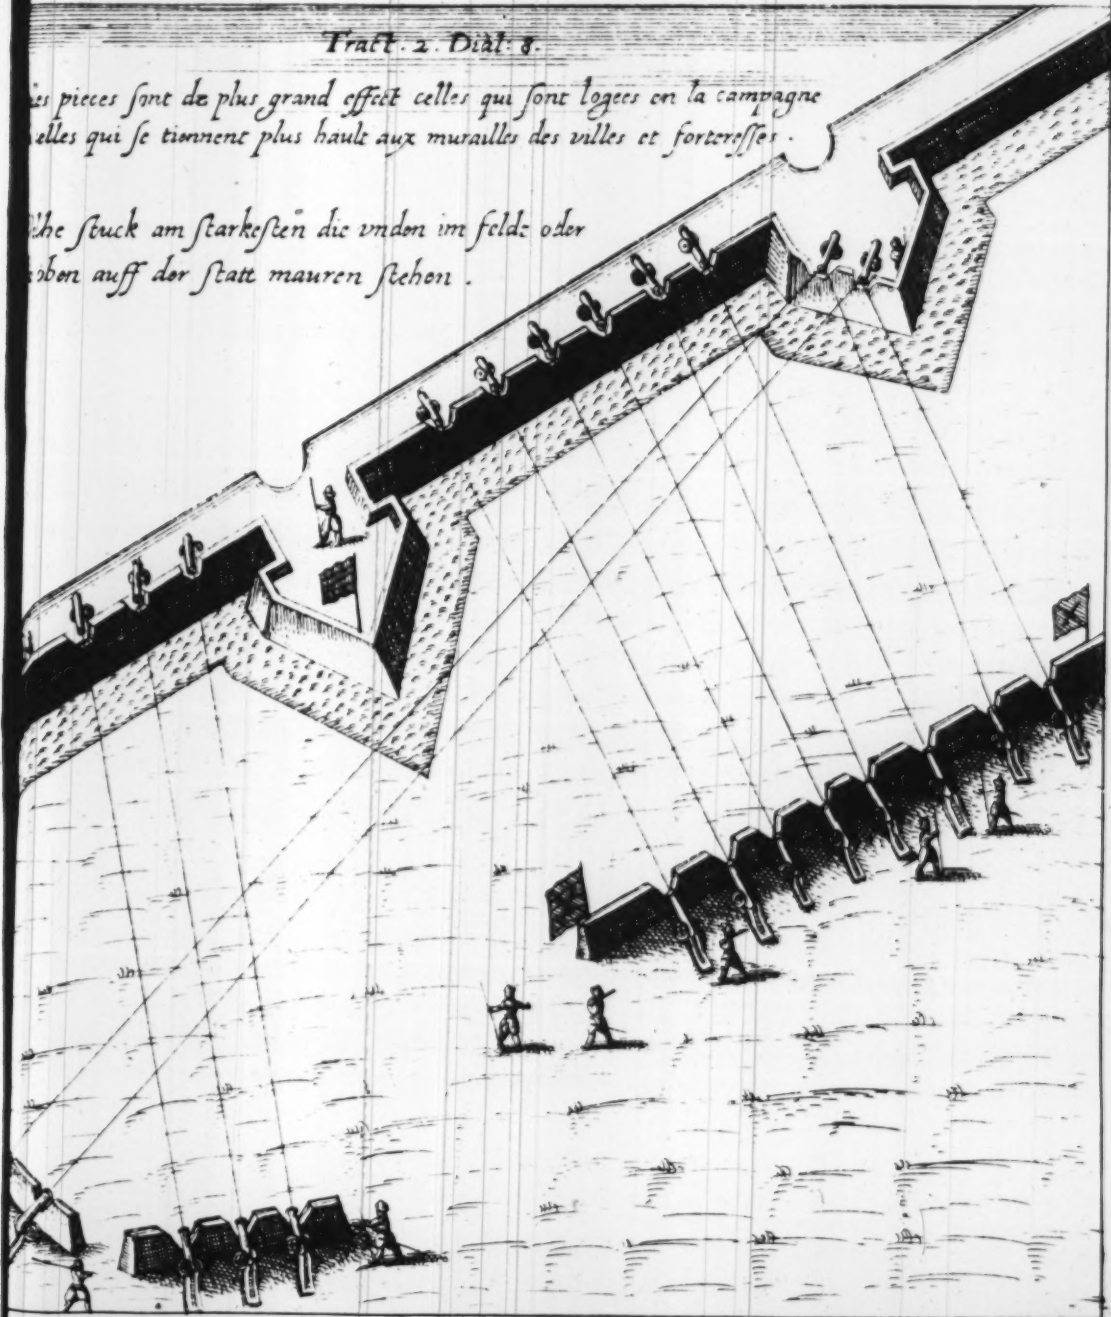 Tract. 2. Dial: 8.
es pieces sont de plus grand effect celles qui sont logees en la campagne
elles qui se tiennent plus hault aux murailles des villes et forteresses.
che stuck am starkesten die vnden im felde oder
oben auff der statt mauren stehen.